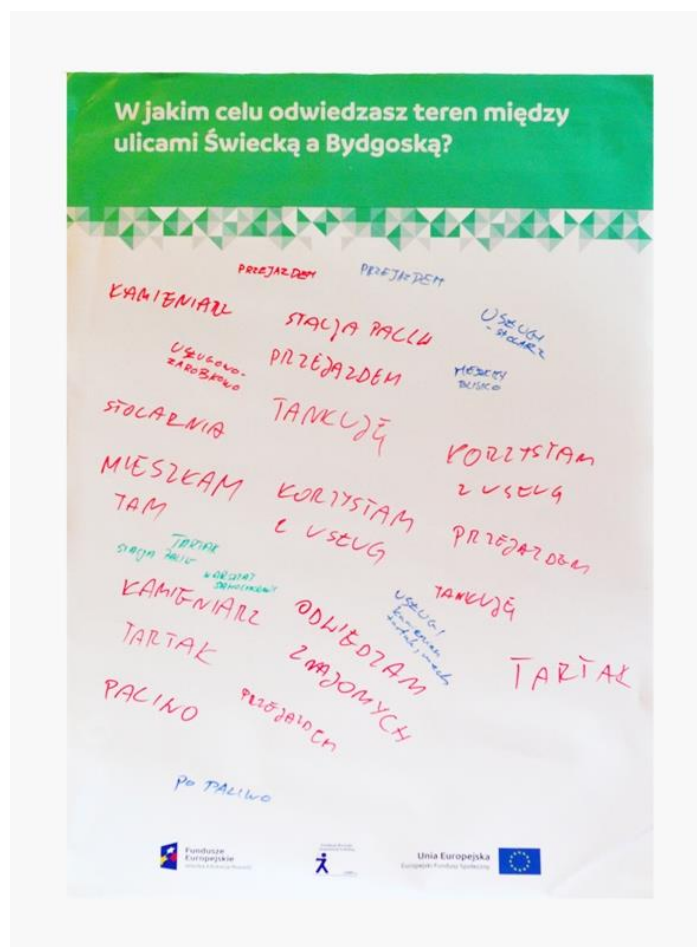 W jakim celu odwiedzasz teren między
ulicami Świecką a Bydgoską?
PRZEJAZDEM
PRZEJAZDEM
KAMIENIARZ
STACJA PALIW
USŁUGI
- STOLARZ
USŁUGOWO-
ZAROBKOWO
PRZEJAZDEM
MIESZKAM
BLISKO
STOLARNIA
TANKUJĘ
KORZYSTAM
Z USŁUG
MIESZKAM
TAM
KORZYSTAM
Z USŁUG
PRZEJAZDEM
TARTAK
STACJA PALIW
WARSZTAT
SAMOCHODOWY
TANKUJĘ
KAMIENIARZ
ODWIEDZAM
ZNAJOMYCH
USŁUGI
kamieniarz
TARTAK
TARTAK
PALIWO
PRZEJAZDEM
PO PALIWO
Fundusze
Europejskie
Unia Europejska
Europejski Fundusz Społeczny